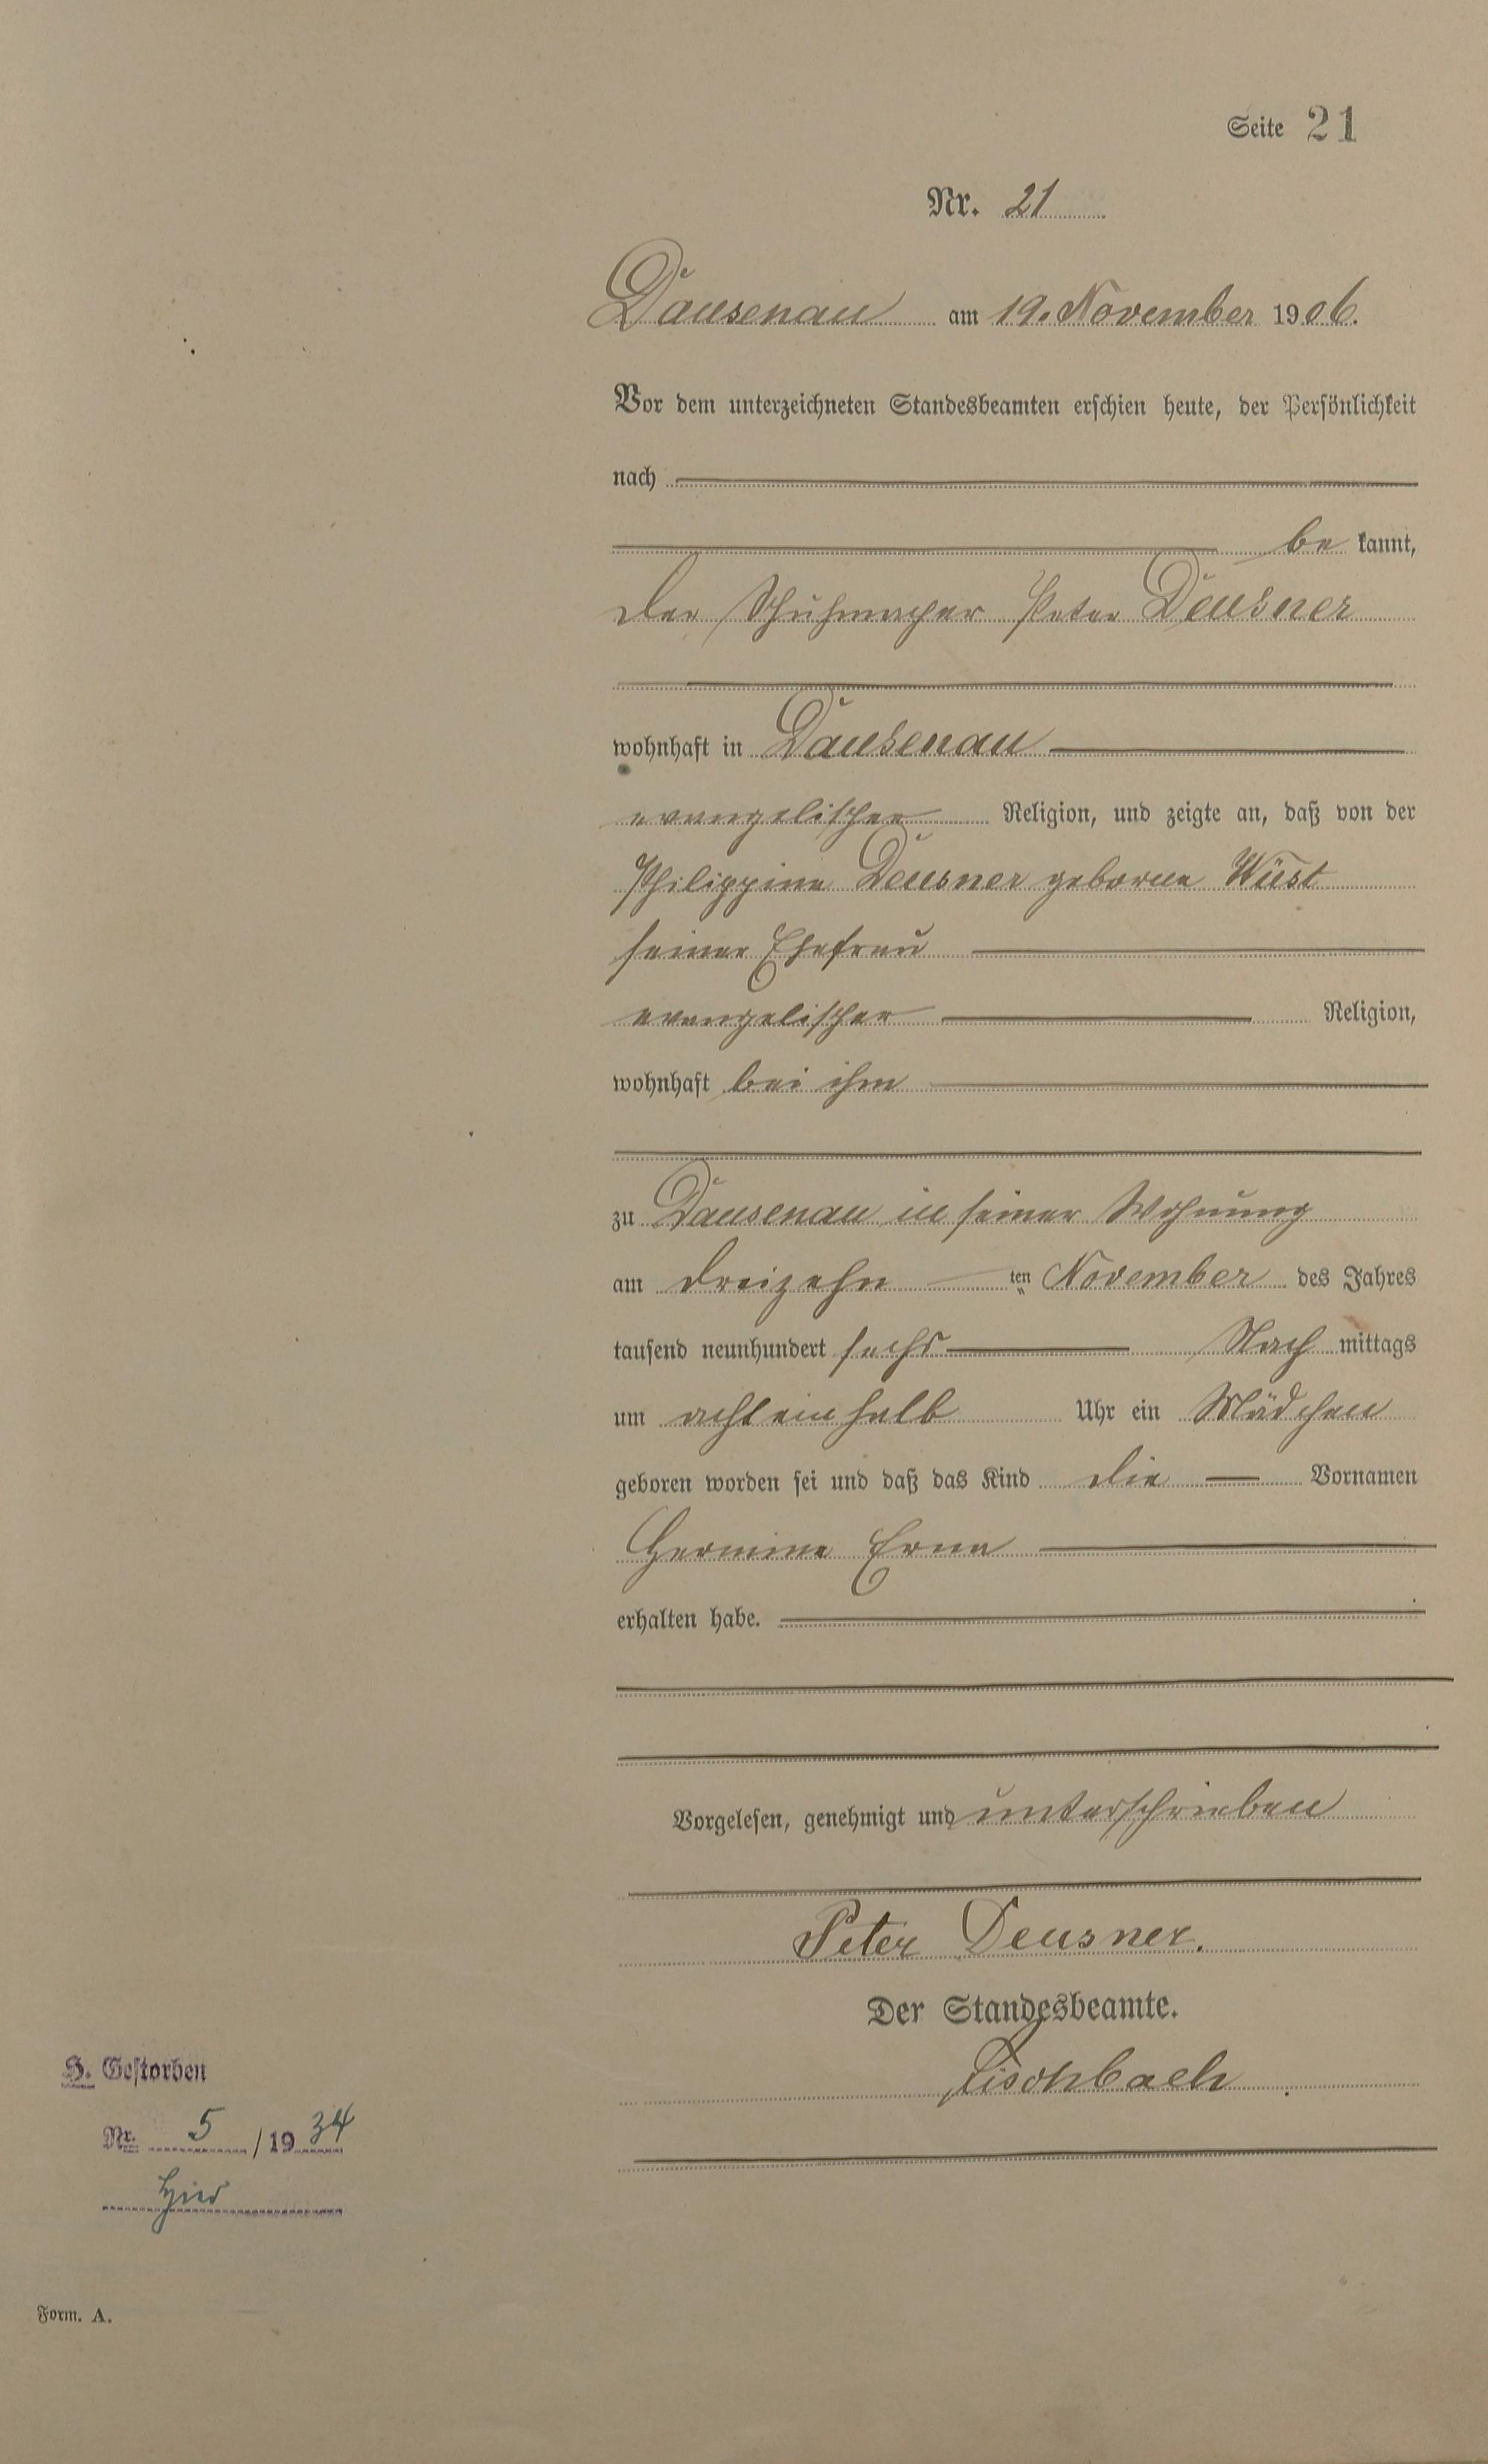 Seite 21
Nr. 21
Dausenau am 19. November 1906.
Vor dem unterzeichneten Standesbeamten erschien heute, der Persönlichkeit
nach
be kannt,
der Schuhmacher Peter Deusner
wohnhaft in Dausenau
evangelischer Religion, und zeigte an, daß von der
Philippine Deusner geborne Wüst
seiner Ehefrau
evangelischer Religion,
wohnhaft bei ihm
zu Dausenau in seiner Wohnung
am dreizehn ten November des Jahres
tausend neunhundert sechs Nach mittags
um acht ein halb Uhr ein Mädchen
geboren worden sei und daß das Kind die Vornamen
Hermine Erna
erhalten habe.
Vorgelesen, genehmigt und unterschrieben
Peter Deusner.
Der Standesbeamte.
Fischbach
H. Gestorben
Nr. 5 / 1934
hier
Form. A.